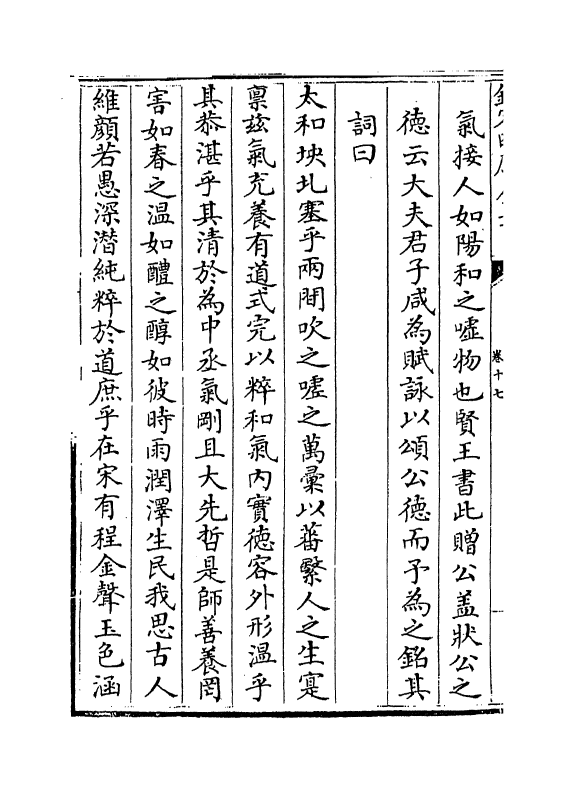 卷十七
氣接人如陽和之噓物也賢王書此贈公盖狀公之
德云大夫君子咸為賦詠以頌公德而予為之銘其
詞曰
太和坱圠塞乎兩間吹之噓之萬彙以蕃繄人之生寔
禀玆氣充養有道式完以粹和氣内實德容外形温乎
其恭湛乎其清於為中丞氣剛且大先哲是師善養罔
害如春之温如醴之醇如彼時雨潤澤生民我思古人
維顔若愚深潜純粹於道庶乎在宋有程金聲玉色涵